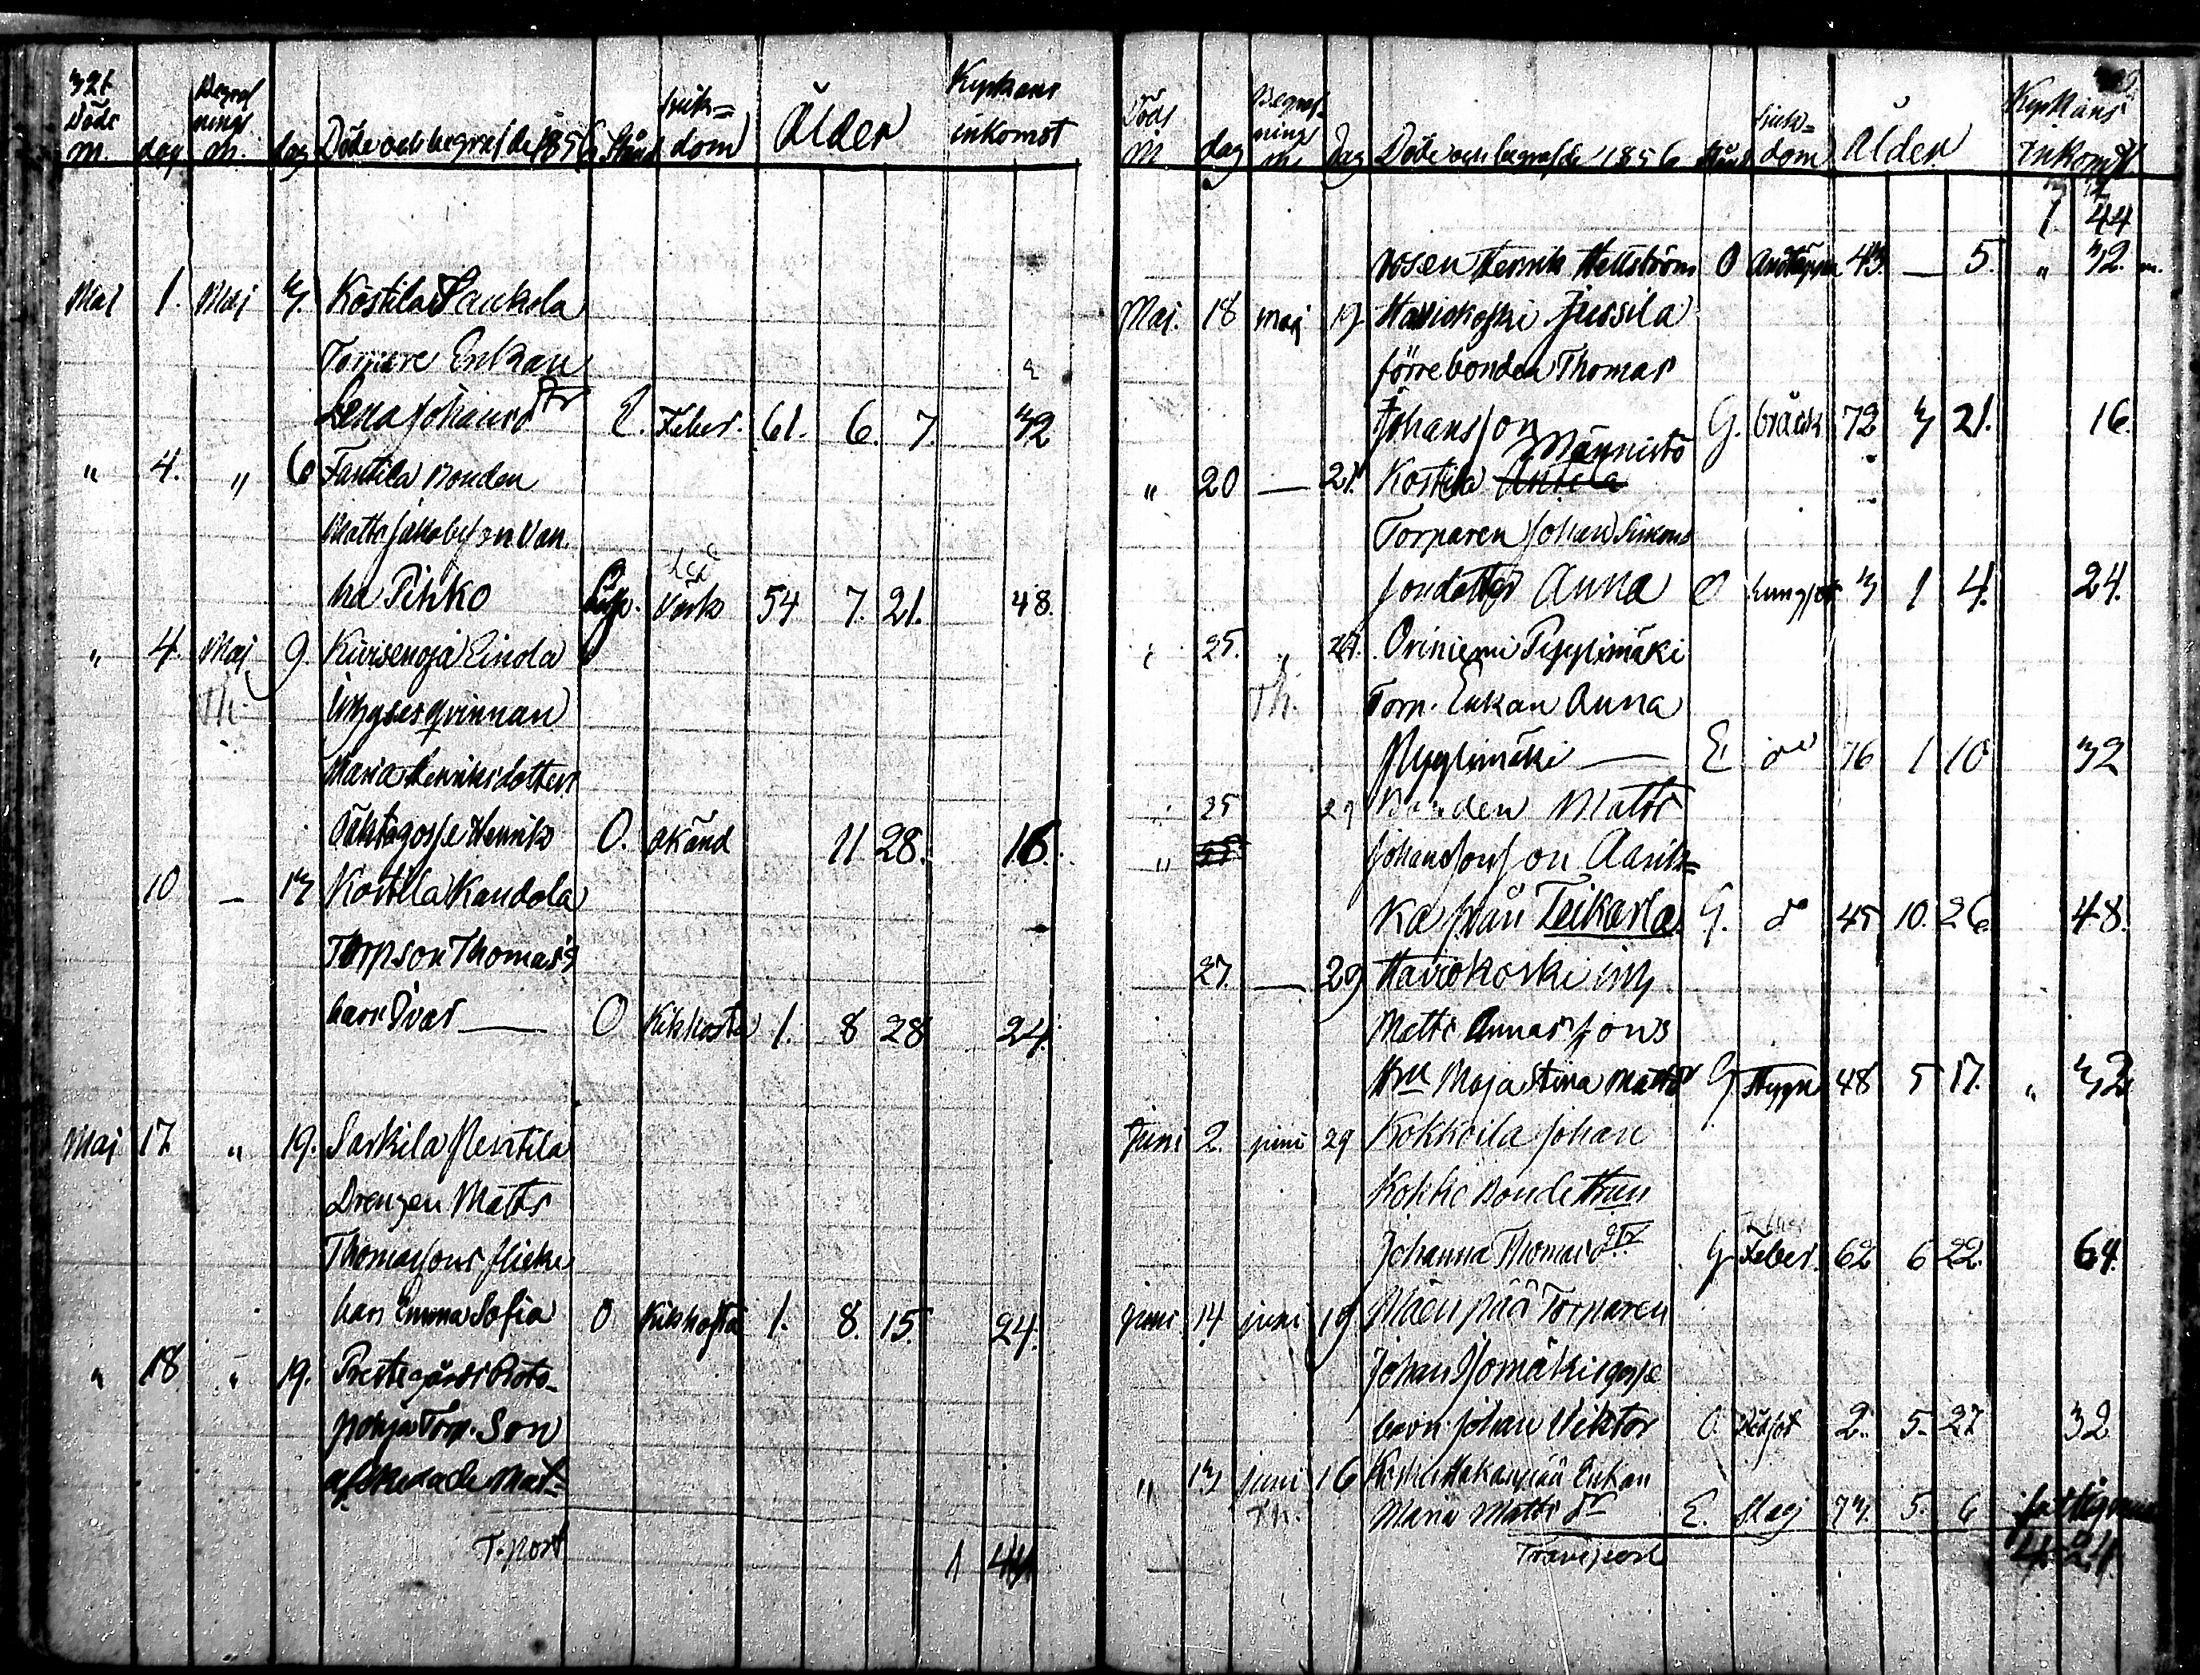 321
Döds m. dag Begrafnings m. dag Döde och begrafde 1856 Stånd Sjukdom Ålder Kyrkans inkomst
Maj 1. Maj 3. Kostila Saukola
Torpare Enkan
Lena Johansdtr E. Feber. 61. 6. 7. 32
" 4. " 6 Bonden
Matts Jakobsson Van-
ha Pihko Värk 54 7. 21. 48.
" 4. Maj 9. Kivisenoja Einola
Th. Inhysesqvinnan
Maria Henriksdotters
Oäkta gosse Henrik O. okänd 11 28. 16.
10 — 13 Kostila Kandola
Torpson Thomas's
barn Ivar — O Kikhosta 1. 8 28 24.
Maj 17 " 19. Sarkila Pentila
Drengen Matts
Thomassons flicke
barn Emma Sofia O Kikhosta 1. 8. 15. 24.
" 18 " 19. Prestegårds
pohja Torp. Son
afskedade Mat-
T.port 1 44
Döds m. dag Begrafnings m. dag Döde och begrafde 1856 Stånd Sjukdom Ålder Kyrkans inkomst
1 44
rosen Henrik Hellström O Andtäppa 43. — 5. " 32.
Maj. 18 maj 19 Jussila
förre bonden Thomas
Johansson G. bråck 72 3 21. 16.
" 20 — 21. Kostila Männistö
Torparen Johan Simons
sondotter Anna O Lungsot 3 1 4. 24.
" 25. " Oriniemi Pyylimäki
Th. Torp. Enkan Anna
Pyylimäki — E. do 76 1 10 32
25 29 Bonden Matts
" Johansson
ka från Teikarla. G. do 45 10. 26 48.
27. — 29 Havokoski inh
Matts sons
Hru Maja Stina Matts G Stygn 48 5 17. " 32
Juni 2. juni 29 Kokkoila Johan
Kokki Bonde Hrun
Johanna Thomasdtr G Feber. 62 6 22. 64.
Juni 14 juni 19 Mäenpää Torparen
Johan Isomäkis gosse
barn Johan Viktor O. 2. 5. 27 32
" 13 juni 16 Enkan
Th. Maria Matts dr E. Slag 73. 5. 6
Transport 4. 24.